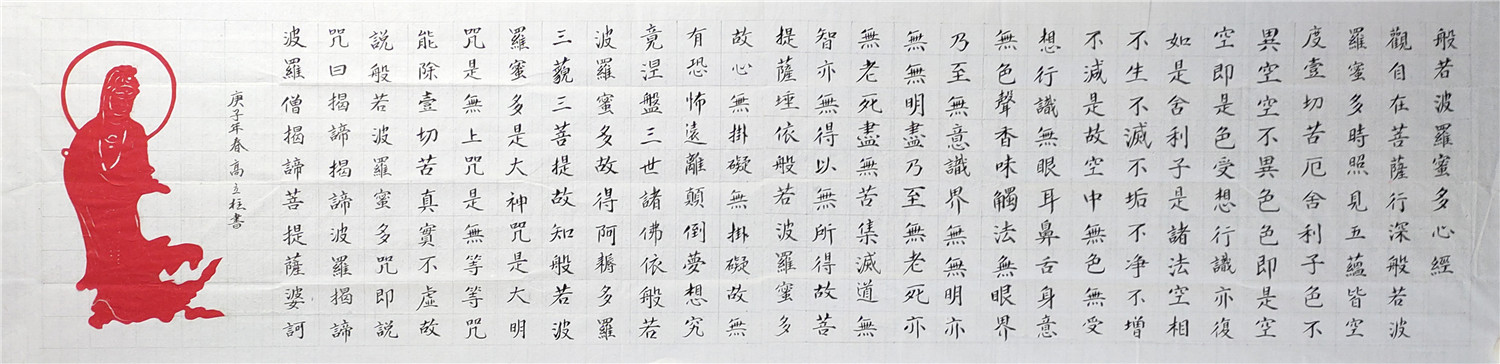 般若波羅蜜多心經
觀自在菩薩行深般若波
羅蜜多時照見五蘊皆空
度壹切苦厄舍利子色不
異空空不異色色即是空
空即是色受想行識亦復
如是舍利子是諸法空相
不生不滅不垢不净不增
不減是故空中無色無受
想行識無眼耳鼻舌身意
無色聲香味觸法無眼界
乃至無意識界無無明亦
無無明盡乃至無老死亦
無老死盡無苦集滅道無
智亦無得以無所得故菩
提薩埵依般若波羅蜜多
故心無掛礙無掛礙故無
有恐怖遠離顛倒夢想究
竟涅盤三世諸佛依般若
波羅蜜多故得阿耨多羅
三藐三菩提故知般若波
羅蜜多是大神咒是大明
咒是無上咒是無等等咒
能除壹切苦真實不虛故
說般若波羅蜜多咒即說
咒曰揭諦揭諦波羅揭諦
波羅僧揭諦菩提薩婆訶
庚子年春高立柱書